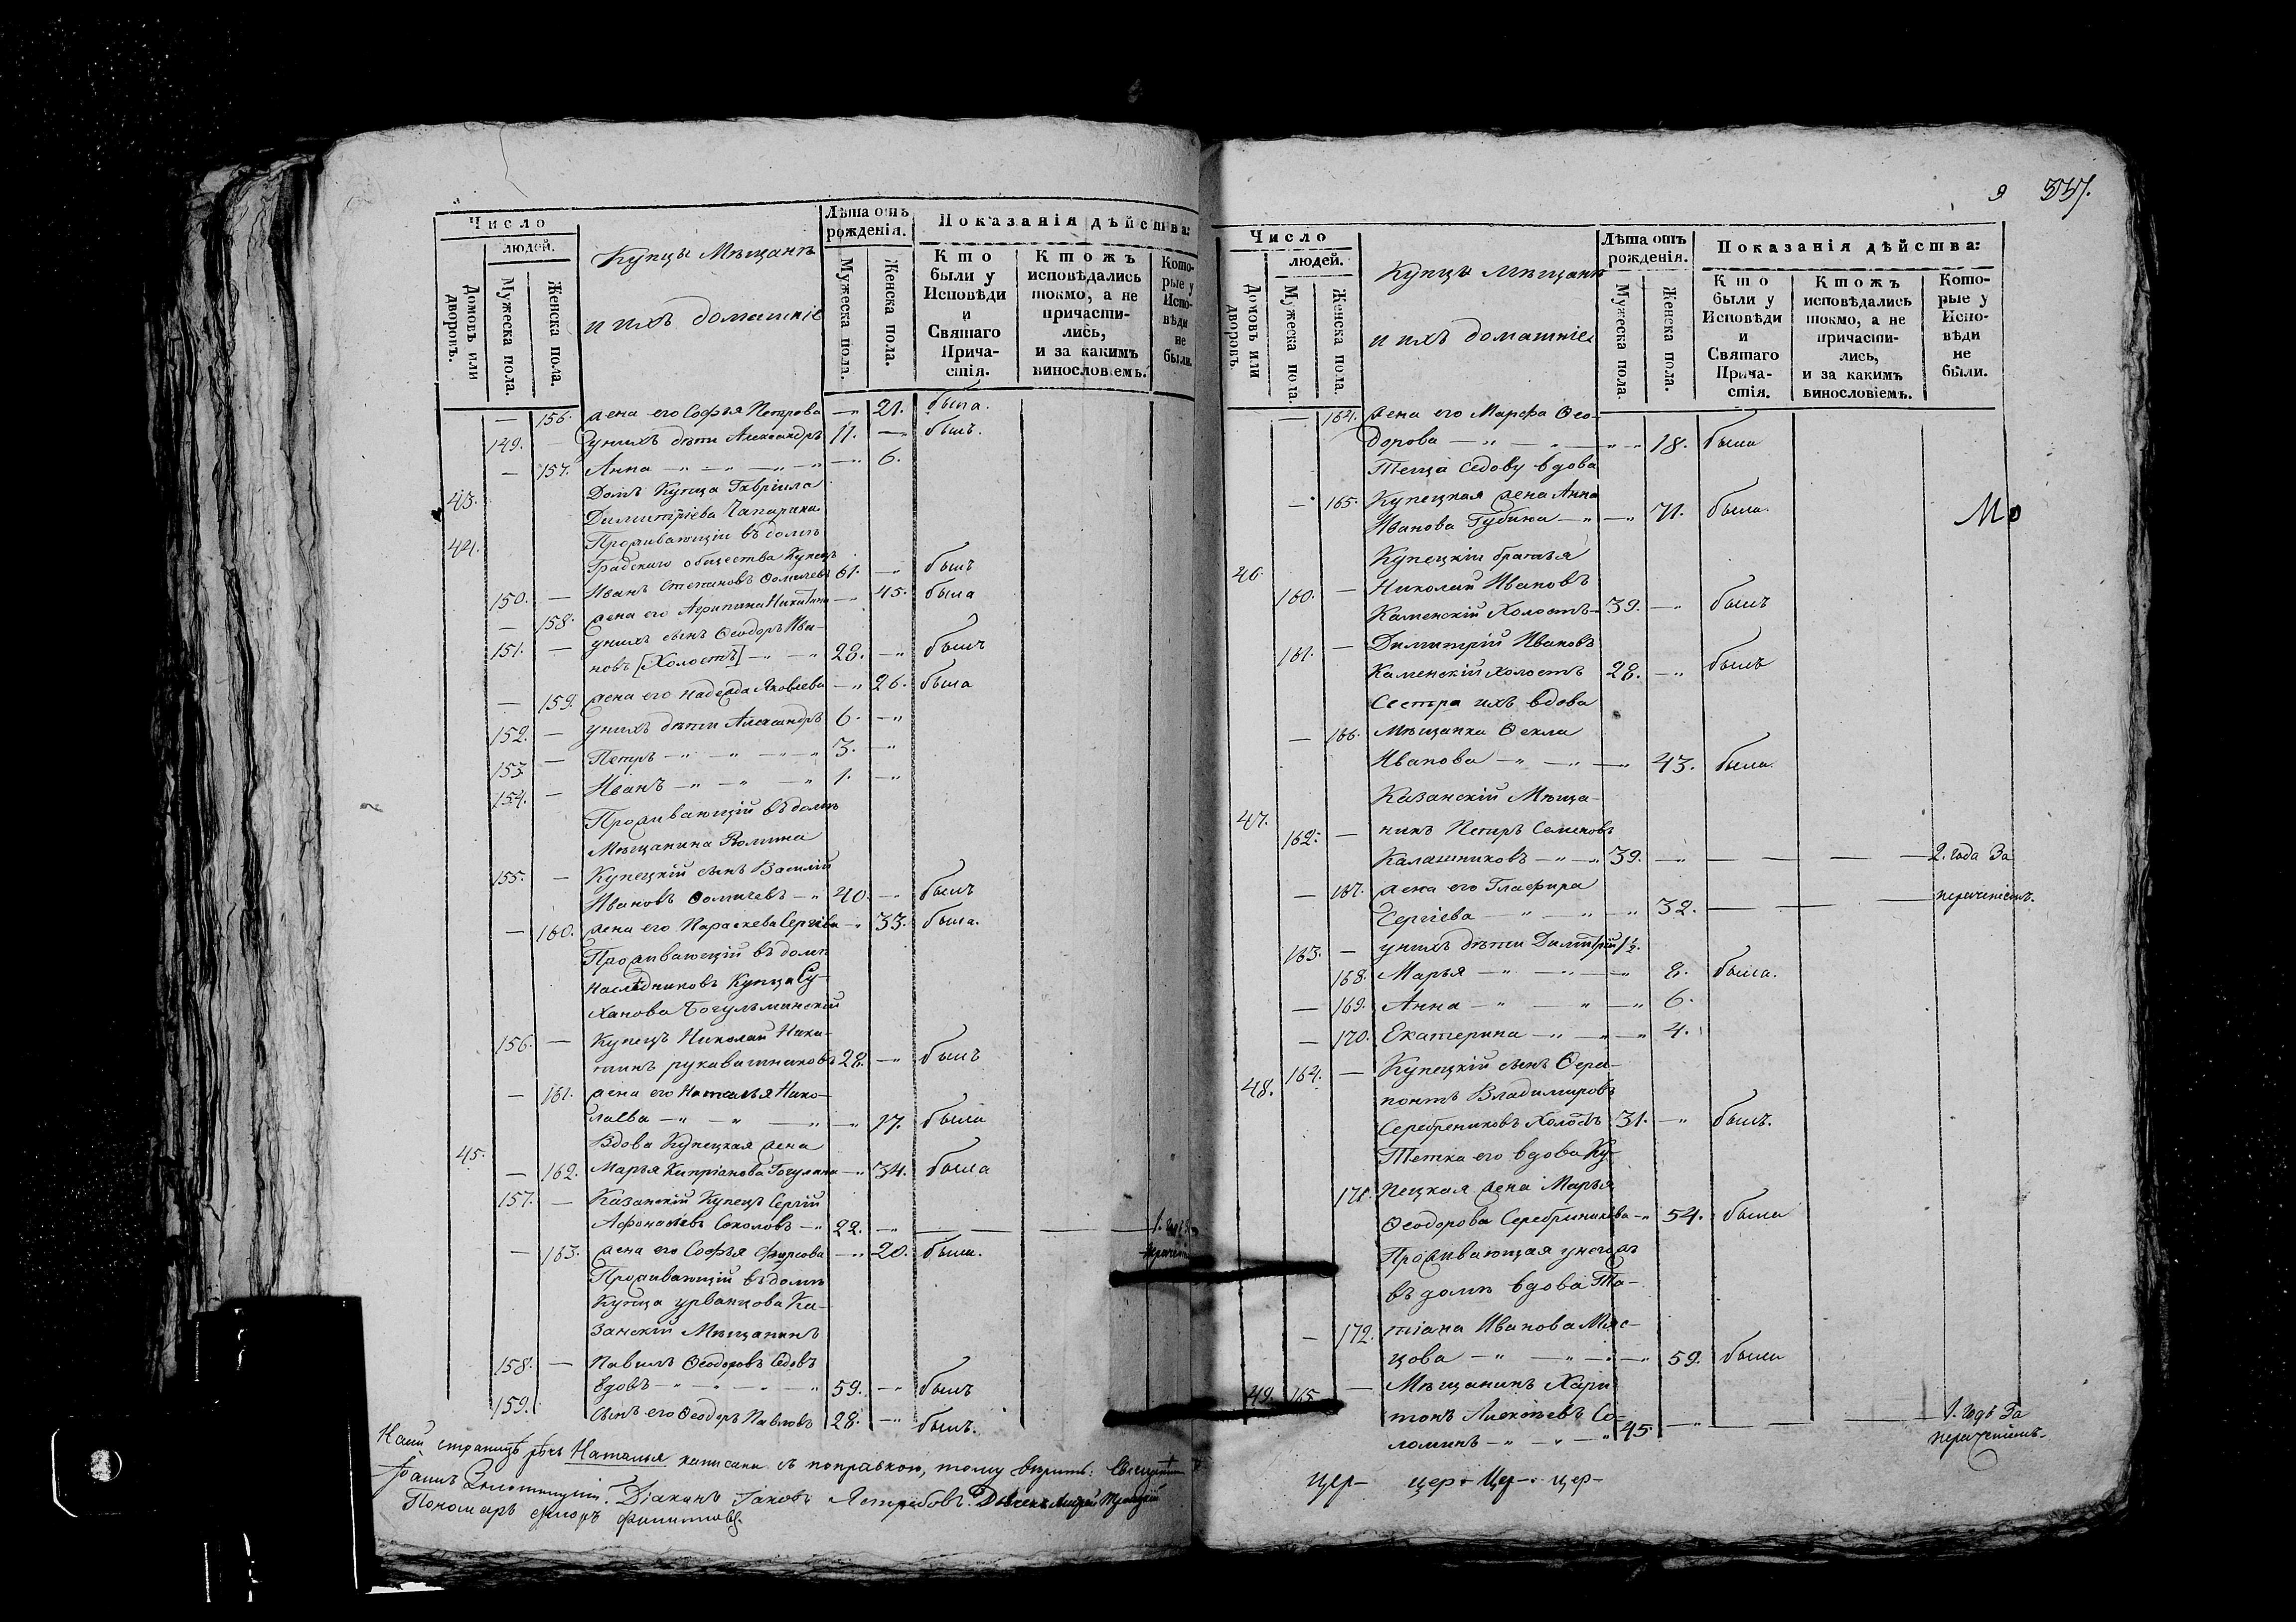 Число
людей.
Домовъ или дворовъ.
Мужеска пола.
Женска пола.
Купцы Мѣщанъ
и ихъ домашніе
Лѣта отъ рожденія.
Мужеска пола.
Женска пола.
Показанія дѣйства:
Кто были у Исповѣди и Святаго Причастія.
Ктожъ исповѣдались токмо, а не причастились, и за какимъ винословіемъ.
Которые у Исповѣди не были.
— 156. жена его Софья Петрова —„ 21. была.
149. — у нихъ дѣти Александръ 11. —„ былъ.
— 157. Анна —„ —„ —„ —„ 6.
43. Домъ Купца Гавріила
Димитріева Чапарина
44. Проживающіи въ домѣ
Градскаго общества Купецъ
150. — Иванъ Степановъ Ѳомичевъ 61. —„ былъ
— 158. жена его Агрипина Никитина —„ 45. была
151. — у нихъ сынъ Ѳеодоръ Ива-
новъ [Холостъ] —„ —„ 28. —„ былъ
— 159. жена его Надежда Яковлева —„ 26. была
152. — у нихъ дѣти Александръ 6. —„
153 — Петръ —„ —„ —„ 3. —„
154. — Иванъ —„ —„ —„ 1. —„
Проживающій въ домѣ
Мѣщанина
155. — Купецкій сынъ Василій
Ивановъ Ѳомичевъ —„ 40. —„ былъ
— 160. жена его Параскева Сергіева —„ 33. была.
Проживающій въ домѣ
наслѣдниковъ Купца Су-
ханова Бугульминскій
156. — Купецъ Николай Ники-
тинъ рукавишниковъ 28. —„ былъ
— 161. жена его Наталья Нико-
лаева —„ —„ —„ —„ 17. была
45. Вдова Купецкая жена
— 162. Марья Кипріанова —„ 34. была
157. — Казанскій Купецъ Сергій
Афонасіевъ Соколовъ —„ 22. —„ — — 1. годъ
— 163. жена его Софья Фирсова —„ 20. была.
Проживающій въ домѣ
Купца урванцова Ка-
занскій Мѣщанинъ
158. — Павилъ Ѳеодоровъ Седовъ
вдовъ —„ —„ —„ —„ 59. —„ былъ
159. сынъ его Ѳеодоръ Павловъ 28. —„ былъ.
страницѣ рѣчь Наталья написана съ поправкою, тому вѣрить: Священникъ
Іоаннъ Діаконъ Іаковъ Ястребовъ.
Пономарь Филиповъ
9 337.
Число
людей.
Домовъ или дворовъ
Мужеска пола.
Женска пола.
Купцъ мѣщанъ
и ихъ домашніе
Лѣта отъ рожденія.
Мужеска пола.
Женска пола.
Показанія дѣйства:
Кто были у Исповѣди и Святаго Причастія.
Ктожъ исповѣдались токмо, а не причастились, и за какимъ винословіемъ.
Которые у Исповѣди не были.
— 164. жена его Марфа Ѳео-
дорова —„ —„ —„ —„ 18. была
Теща Седову вдова
— 165. Купецкая жена Анна
Иванова Губина —„ —„ 71. была.
Мо
46. Купецкіи братья
160. — Николай Ивановъ
Каменскій Холостъ — 39. —„ былъ
161. — Димитрій Ивановъ
Каменскій холостъ 28. —„ былъ
Сестра ихъ вдова
— 166. Мѣщанка Ѳекла
Иванова —„ —„ —„ 43. была.
47. Казанскій Мѣща-
162. — нинъ Петръ Семеновъ
Калашниковъ —„ —„ 39. —„ — — — 2. года За
— 167. жена его Глафира нераченіемъ.
Сергіева —„ —„ —„ 32. — — —
163. — у нихъ дѣти Димитрій 1½.
168. Марья —„ —„ —„ 8. была.
— 169. Анна —„ —„ —„ 6.
— 170. Екатерина —„ —„ —„ 4.
48. 164. — Купецкій сынъ Ѳера-
понтъ Владимировъ
Серебрениковъ Холостъ 31. —„ былъ.
Тетка его вдова Ку-
171. пецкая жена Марья
Ѳеодорова Серебреникова —„ 54. была
Проживающая у него жъ
въ домѣ вдова Та-
— 172. тіана Иванова Мяс-
цова —„ —„ —„ —„ 59. была
49. 165 — Мѣщанинъ Хари-
тонъ Алексѣевъ Со-
ломинъ —„ —„ —„ 45. —„ — — 1. годъ За
нераченіемъ.
цер— цер— Цер— цер—